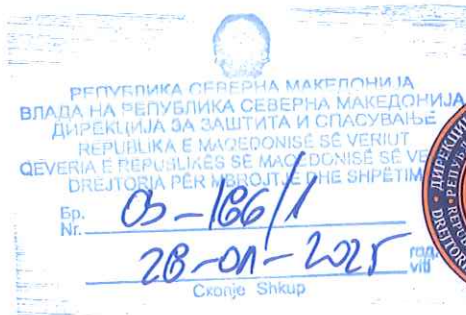 РЕПУБЛИКА СЕВЕРНА МАКЕДОНИЈА
ВЛАДА НА РЕПУБЛИКА СЕВЕРНА МАКЕДОНИЈА
ДИРЕКЦИЈА ЗА ЗАШТИТА И СПАСУВАЊЕ
REPUBLIKA E MAQEDONISË SË VERIUT
QEVERIA E REPUBLIKËS SË MAQEDONISË SË VE
DREJTORIA PËR MBROJTJE DHE SHPËTIM
Бр.
Nr. 03-166/1
28-01-2025 год. viti
Скопје Shkup
ДИРЕКЦИ
РЕПУБЛ
DREJTOR